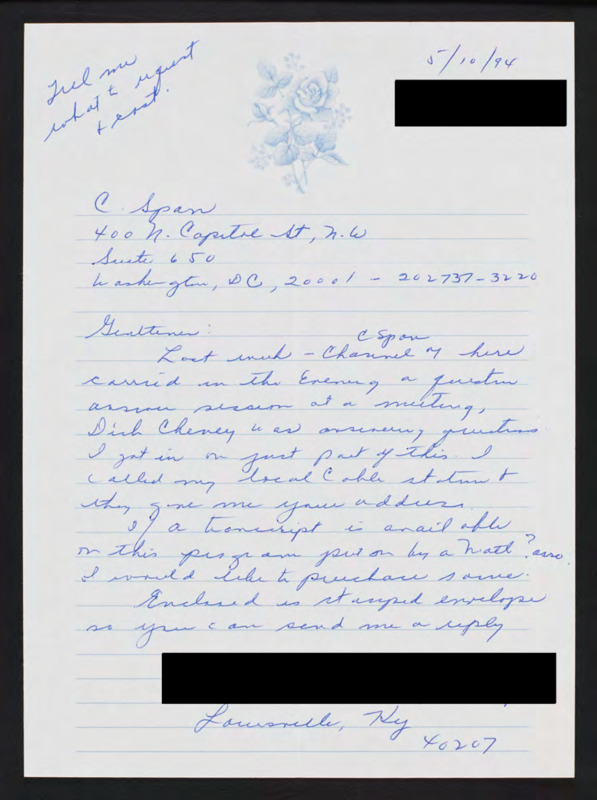 Tell me
what to request
& cost.
5/10/94
C. Span
400 N. Capitol St, N.W
Suite 650
Washington, DC, 20001 - 202737-3220
Gentlemen:
C Span
Last week - Channel of here
carried in the Evening a question
answer session at a meeting,
Dick Cheney was answering questions
I got in on just part of this. I
called my local Cable station &
they gave me your address.
If a transcript is available
on this program put on by a Natl ? asso.
I would like to purchase same.
Enclosed is stamped envelope
so you can send me a reply
Louisville, Ky
40207